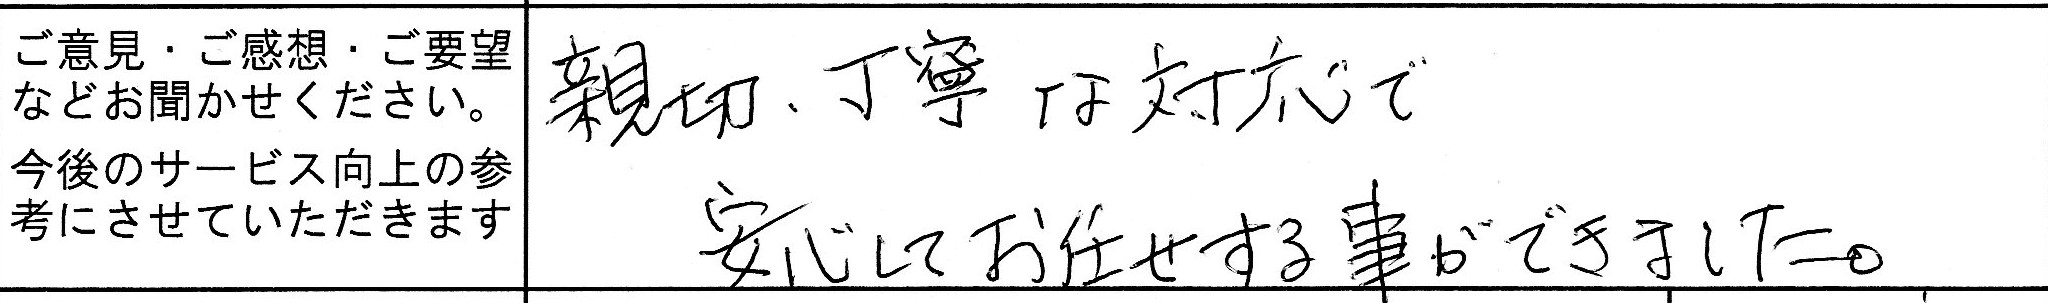 ご意見・ご感想・ご要望
などお聞かせください。
今後のサービス向上の参
考にさせていただきます
親切、丁寧な対応で
安心してお任せする事ができました。